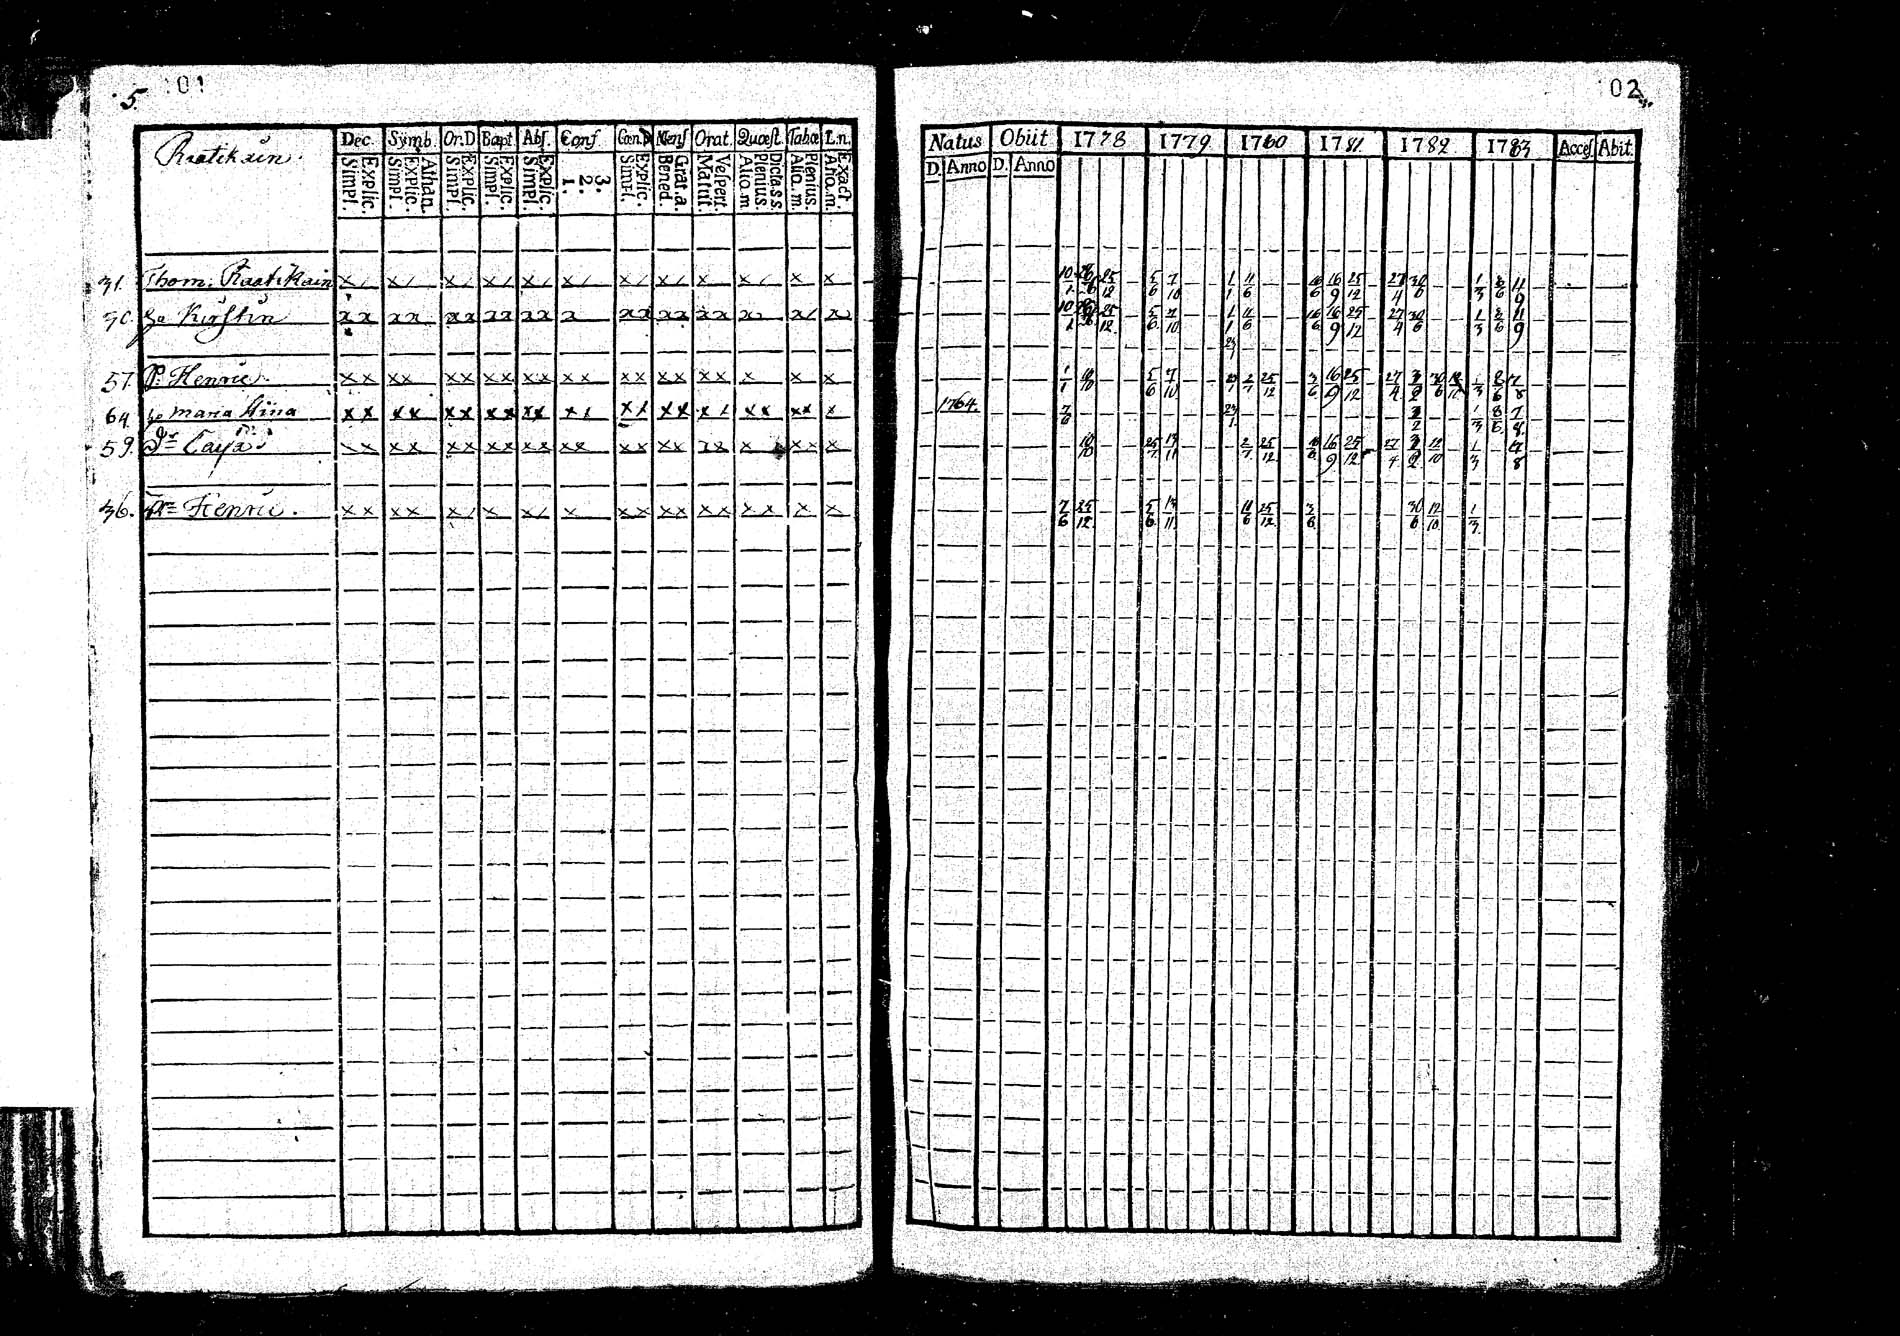 5. 101
Raatikain.
Dec. Symb. Or.D Bapt. Abs. Conf. Cœn.D Mens. Orat. Quæst. Tabœ L.n.
Explic. Simpl. Athan. Explic. Simpl. Explic. Simpl. Explic. Simpl. Explic. Simpl. 3. 2. 1. Explic. Simpl. Grat.a. Bened. Vespert. Matut. Dicta.s.s. Plenius. Alio.m Plenius. Alio.m. Exact. Alio.m.
31. Thom: Raatikain
Kirstin
57. P: Henric.
64. Maria Stina
59. Caysa
36. Henric.
102
Natus Obiit 1778 1779 1780 1781 1782 1783 Acces. Abit.
D. Anno D. Anno
10/1 25/12 5/6 7/10 1/1 11/6 16/6 16/9 25/12 27/4 30/6 1/3 8/6 11/9
10/1 25/12 5/6 7/10 1/1 11/6 16/6 16/9 25/12 27/4 30/6 1/3 8/6 11/9
1/1 18/10 5/6 7/10 23/1 2/7 25/12 3/6 16/9 25/12 27/4 3/2 30/6 1/3 8/6 7/8
1764. 7/6 23/1 3/2 1/3 8/6 7/8
18/10 25/7 13/11 2/7 25/12 16/6 16/9 25/12 27/4 3/2 12/10 1/3 7/8
7/6 25/12 5/6 13/11 11/6 25/12 3/6 30/6 12/10 1/3